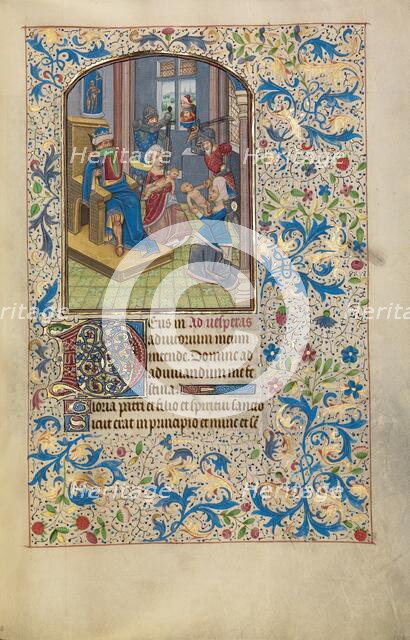 Deus in Ad vesperas
adiutorium meum
intende. Domine ad
adiuuandum me fe
stina.
Gloria patri et filio et spiritui sancto
sicut erat in principio et nunc et se
Heritage
Heritage
Heritage
Heritage
Heritage
Heritage
Heritage
Heritage
Heritage